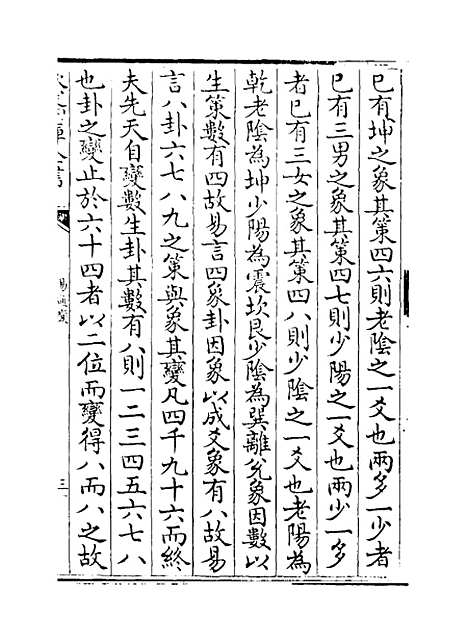 已有坤之象其策四六則老陰之一爻也兩多一少者
已有三男之象其策四七則少陽之一爻也兩少一多
者已有三女之象其策四八則少陰之一爻也老陽為
乾老陰為坤少陽為震坎艮少陰為巽離兌象因數以
生策數有四故易言四象卦因象以成爻象有八故易
言八卦六七八九之策與象其變凡四千九十六而終
夫先天自變數生卦其數有八則一二三四五六七八
也卦之變止於六十四者以二位而變得八而八之故
三